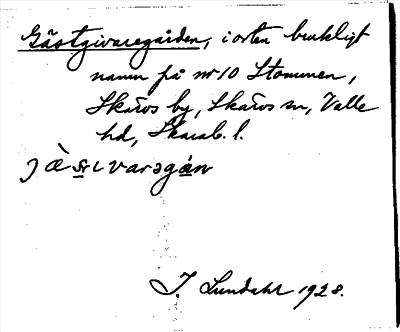 Gästgivaregården, i orten brukligt
namn på nr 10 Stommen,
Skärvs by, Skärvs sn, Valle
hd, Skarab. l.
J. Lundahl 1928.